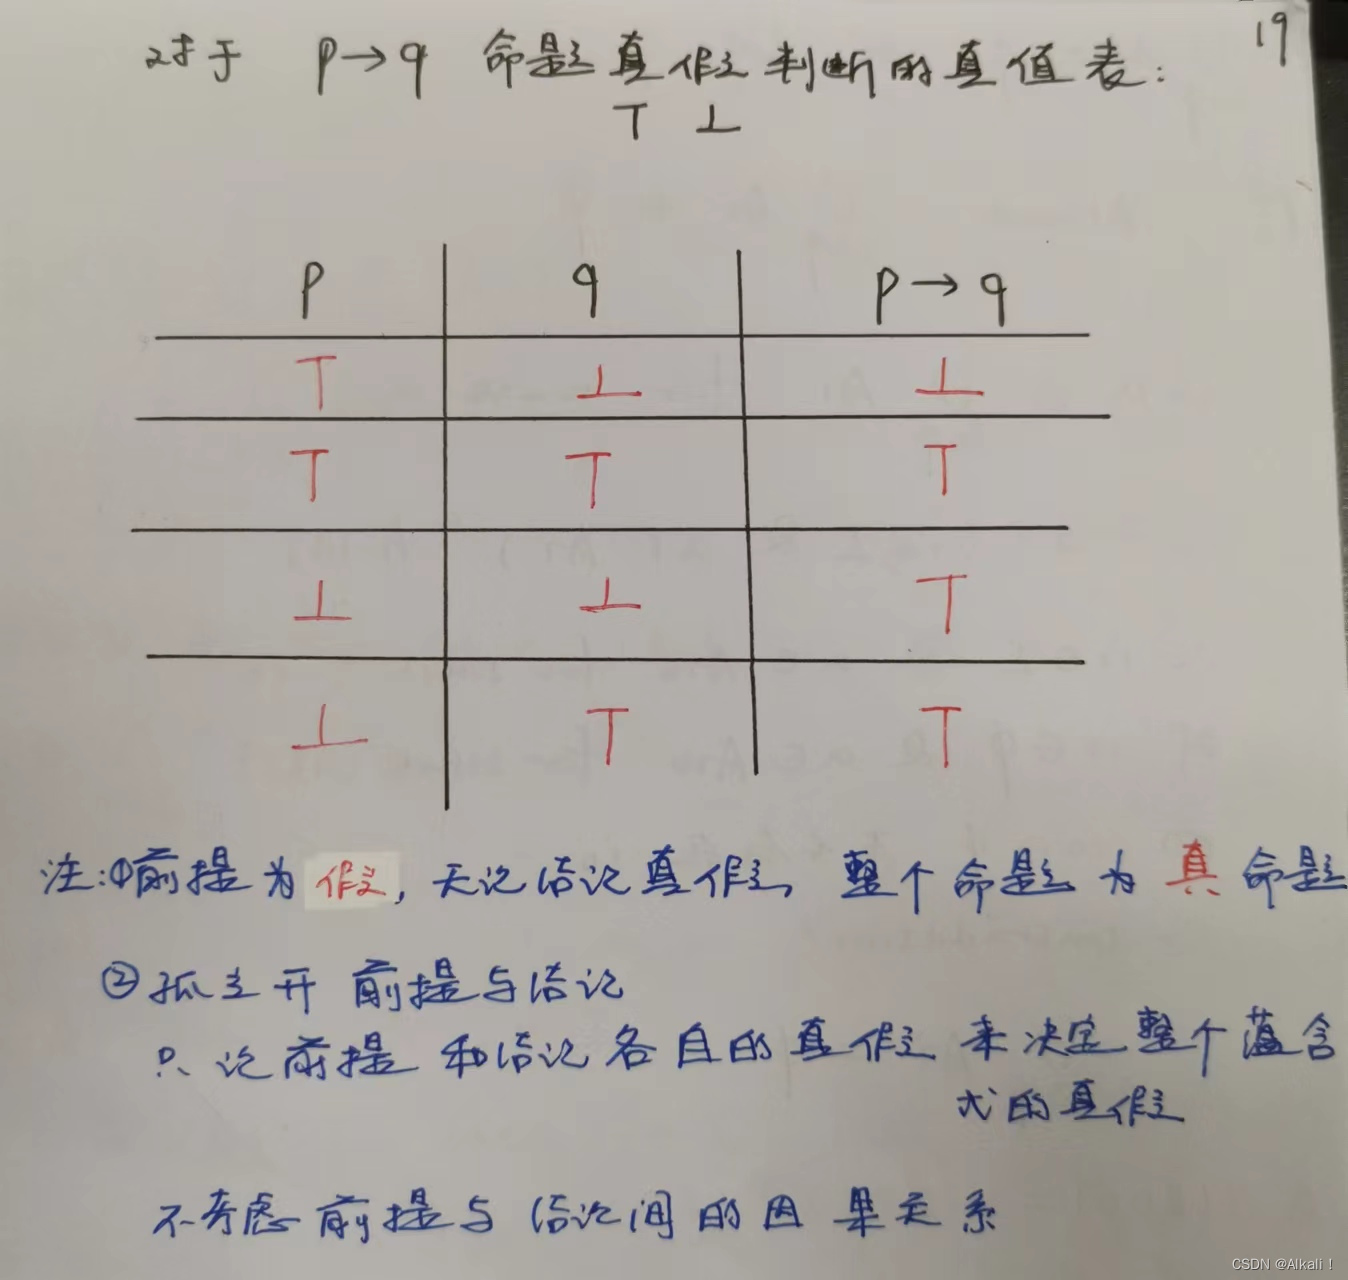 19
对于 p→q 命题真假判断的真值表:
T ⊥
p q p→q
T ⊥ ⊥
T T T
⊥ ⊥ T
⊥ T T
注:①前提为假, 无论结论真假, 整个命题为真命题
②孤立开前提与结论
只论前提和结论各自的真假来决定整个蕴含
式的真假
不考虑前提与结论间的因果关系
CSDN @Alkali!